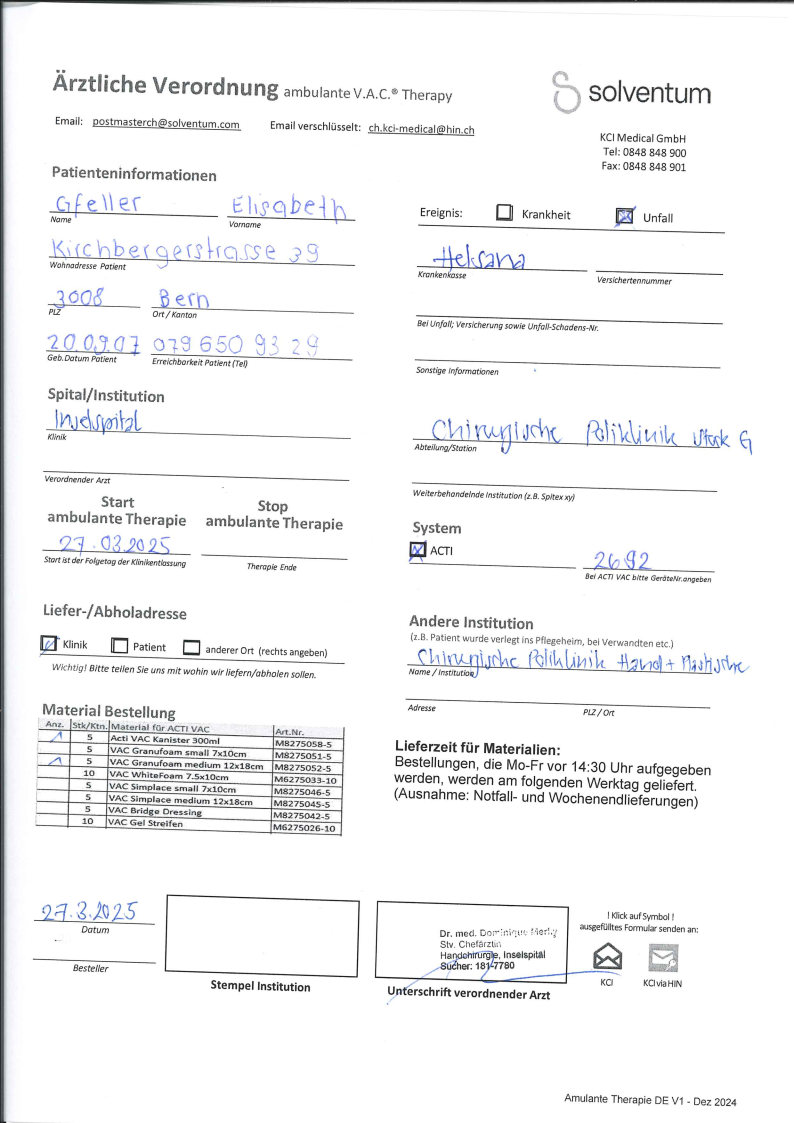 Ärztliche Verordnung ambulante V.A.C.® Therapy
solventum
Email: postmasterch@solventum.com Email verschlüsselt: ch.kci-medical@hin.ch
KCI Medical GmbH
Tel: 0848 848 900
Fax: 0848 848 901
Patienteninformationen
Gfeller Elisabeth
Name Vorname
Ereignis: Krankheit Unfall
Kirchbergerstrasse 39
Wohnadresse Patient
Helsana
Krankenkasse Versichertennummer
3008 Bern
PLZ Ort / Kanton
Bei Unfall; Versicherung sowie Unfall-Schadens-Nr.
20.09.07 079 650 93 29
Geb.Datum Patient Erreichbarkeit Patient (Tel)
Sonstige Informationen
Spital/Institution
Inselspital
Klinik
Chirurgische Poliklinik Stock G
Abteilung/Station
Verordnender Arzt
Weiterbehandelnde Institution (z.B. Spitex xy)
Start Stop
ambulante Therapie ambulante Therapie
27.03.2025
Start ist der Folgetag der Klinikentlassung Therapie Ende
System
ACTI 2692
Bei ACTI VAC bitte GeräteNr.angeben
Liefer-/Abholadresse
Klinik Patient anderer Ort (rechts angeben)
Wichtig! Bitte teilen Sie uns mit wohin wir liefern/abholen sollen.
Andere Institution
(z.B. Patient wurde verlegt ins Pflegeheim, bei Verwandten etc.)
Chirurgische Poliklinik Hand +
Name / Institution
Adresse PLZ / Ort
Material Bestellung
Anz. Stk/Ktn. Material für ACTI VAC Art.Nr.
1 5 Acti VAC Kanister 300ml M8275058-5
5 VAC Granufoam small 7x10cm M8275051-5
1 5 VAC Granufoam medium 12x18cm M8275052-5
10 VAC WhiteFoam 7.5x10cm M6275033-10
5 VAC Simplace small 7x10cm M8275046-5
5 VAC Simplace medium 12x18cm M8275045-5
5 VAC Bridge Dressing M8275042-5
10 VAC Gel Streifen M6275026-10
Lieferzeit für Materialien:
Bestellungen, die Mo-Fr vor 14:30 Uhr aufgegeben
werden, werden am folgenden Werktag geliefert.
(Ausnahme: Notfall- und Wochenendlieferungen)
27.3.2025
Datum
Besteller
Stempel Institution
Dr. med. Dominique Merky
Stv. Chefärztin
Handchirurgie, Inselspital
Sucher: 181-7780
Unterschrift verordnender Arzt
! Klick auf Symbol !
ausgefülltes Formular senden an:
KCI KCI via HIN
Amulante Therapie DE V1 - Dez 2024